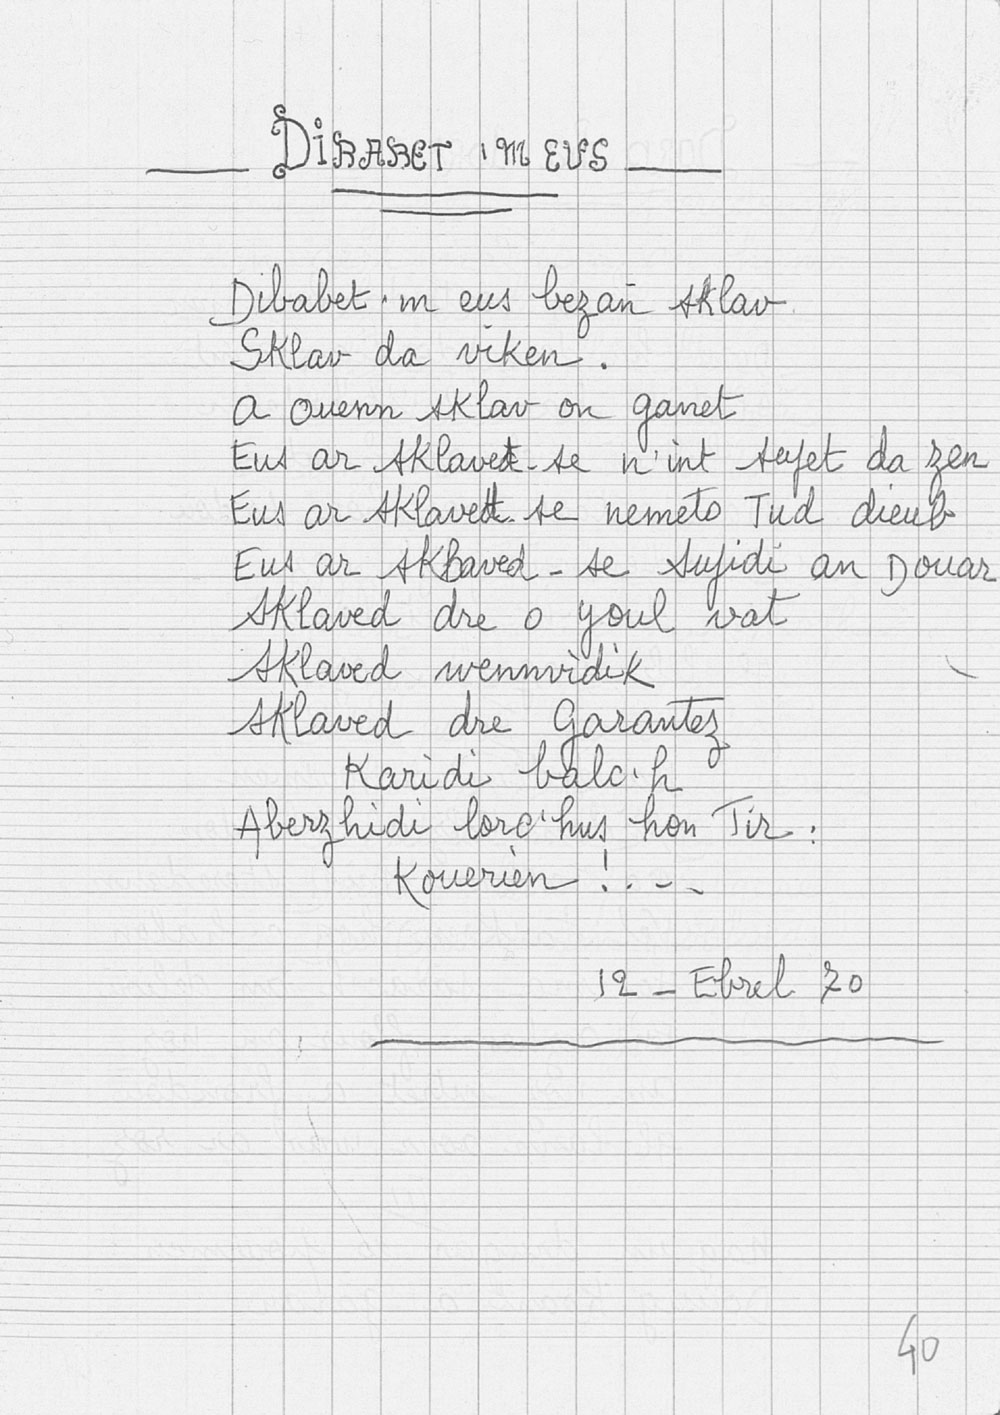 DIBABET 'M EUS
Dibabet 'm eus bezañ sklav
Sklav da viken.
a ouenn sklav on ganet
Eus ar sklavet-se n'int sujet da zen
Eus ar sklavett-se nemeto Tud dieub
Eus ar sklaved-se sujidi an Douar
Sklaved dre o youl vat
Sklaved wennvidik
Sklaved dre Garantez
Karidi balc'h
Aberzhidi lorc'hus hon Tir :
Kouerien !...
12 - Ebrel 70
40